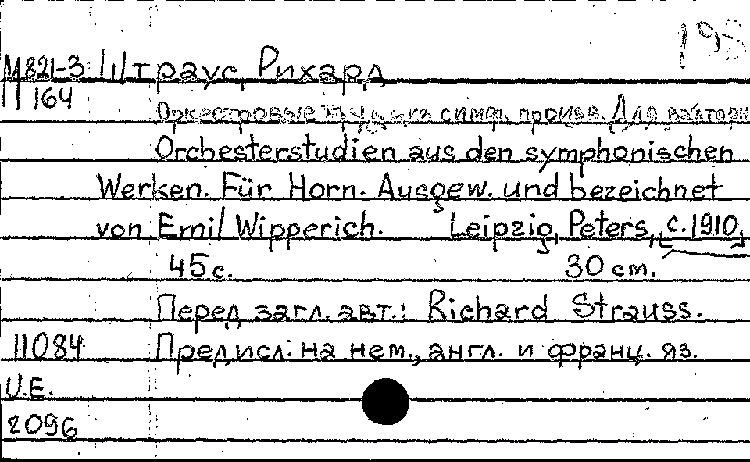 195
М 821-3 Штраус, Рихард
164
Оркестровые из симф. произв. Для валторны
Orchesterstudien aus den symphonischen
Werken. Für Horn. Ausgew. und bezeichnet
von Emil Wipperich. Leipzig, Peters, [c. 1910]
45 с. 30 см.
Перед загл. авт.: Richard Strauss.
11084 Предисл. на нем., англ. и франц. яз.
U.E.
2096